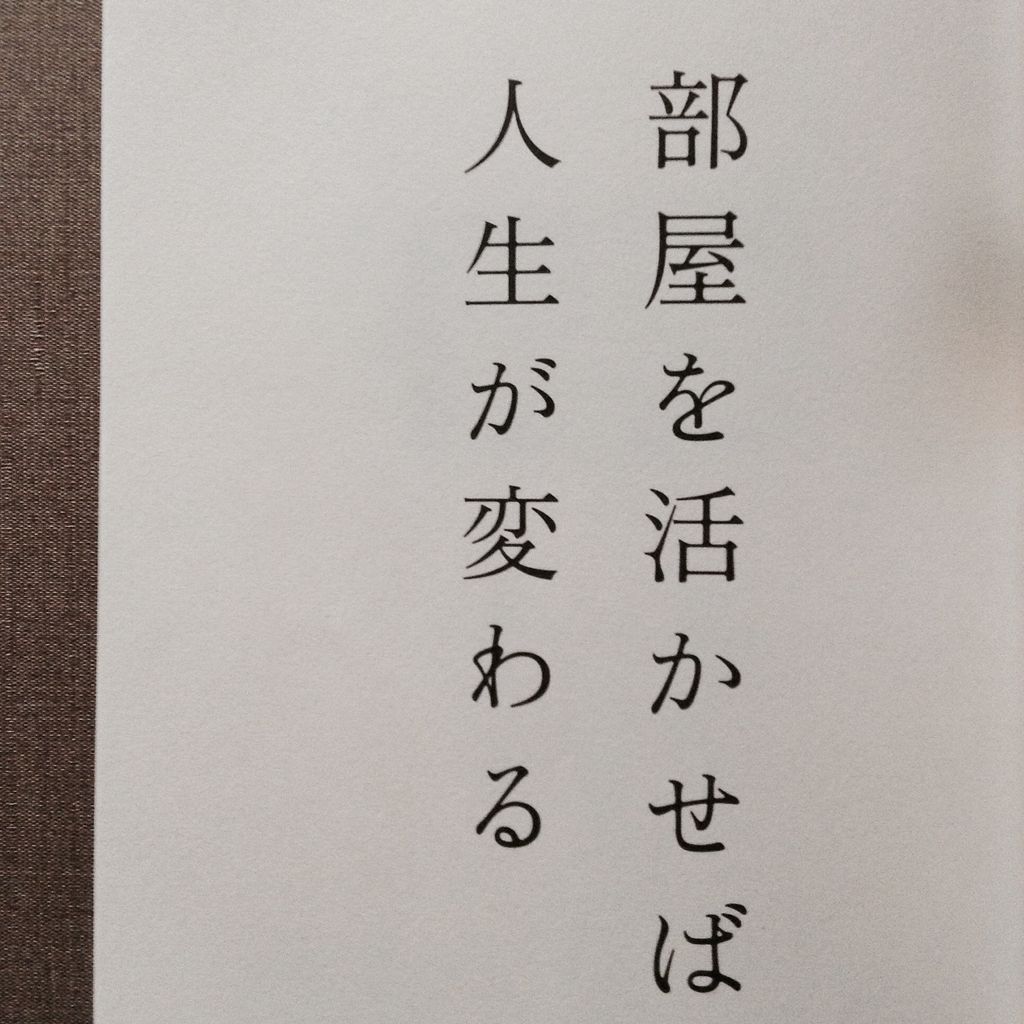 部屋を活かせば
人生が変わる